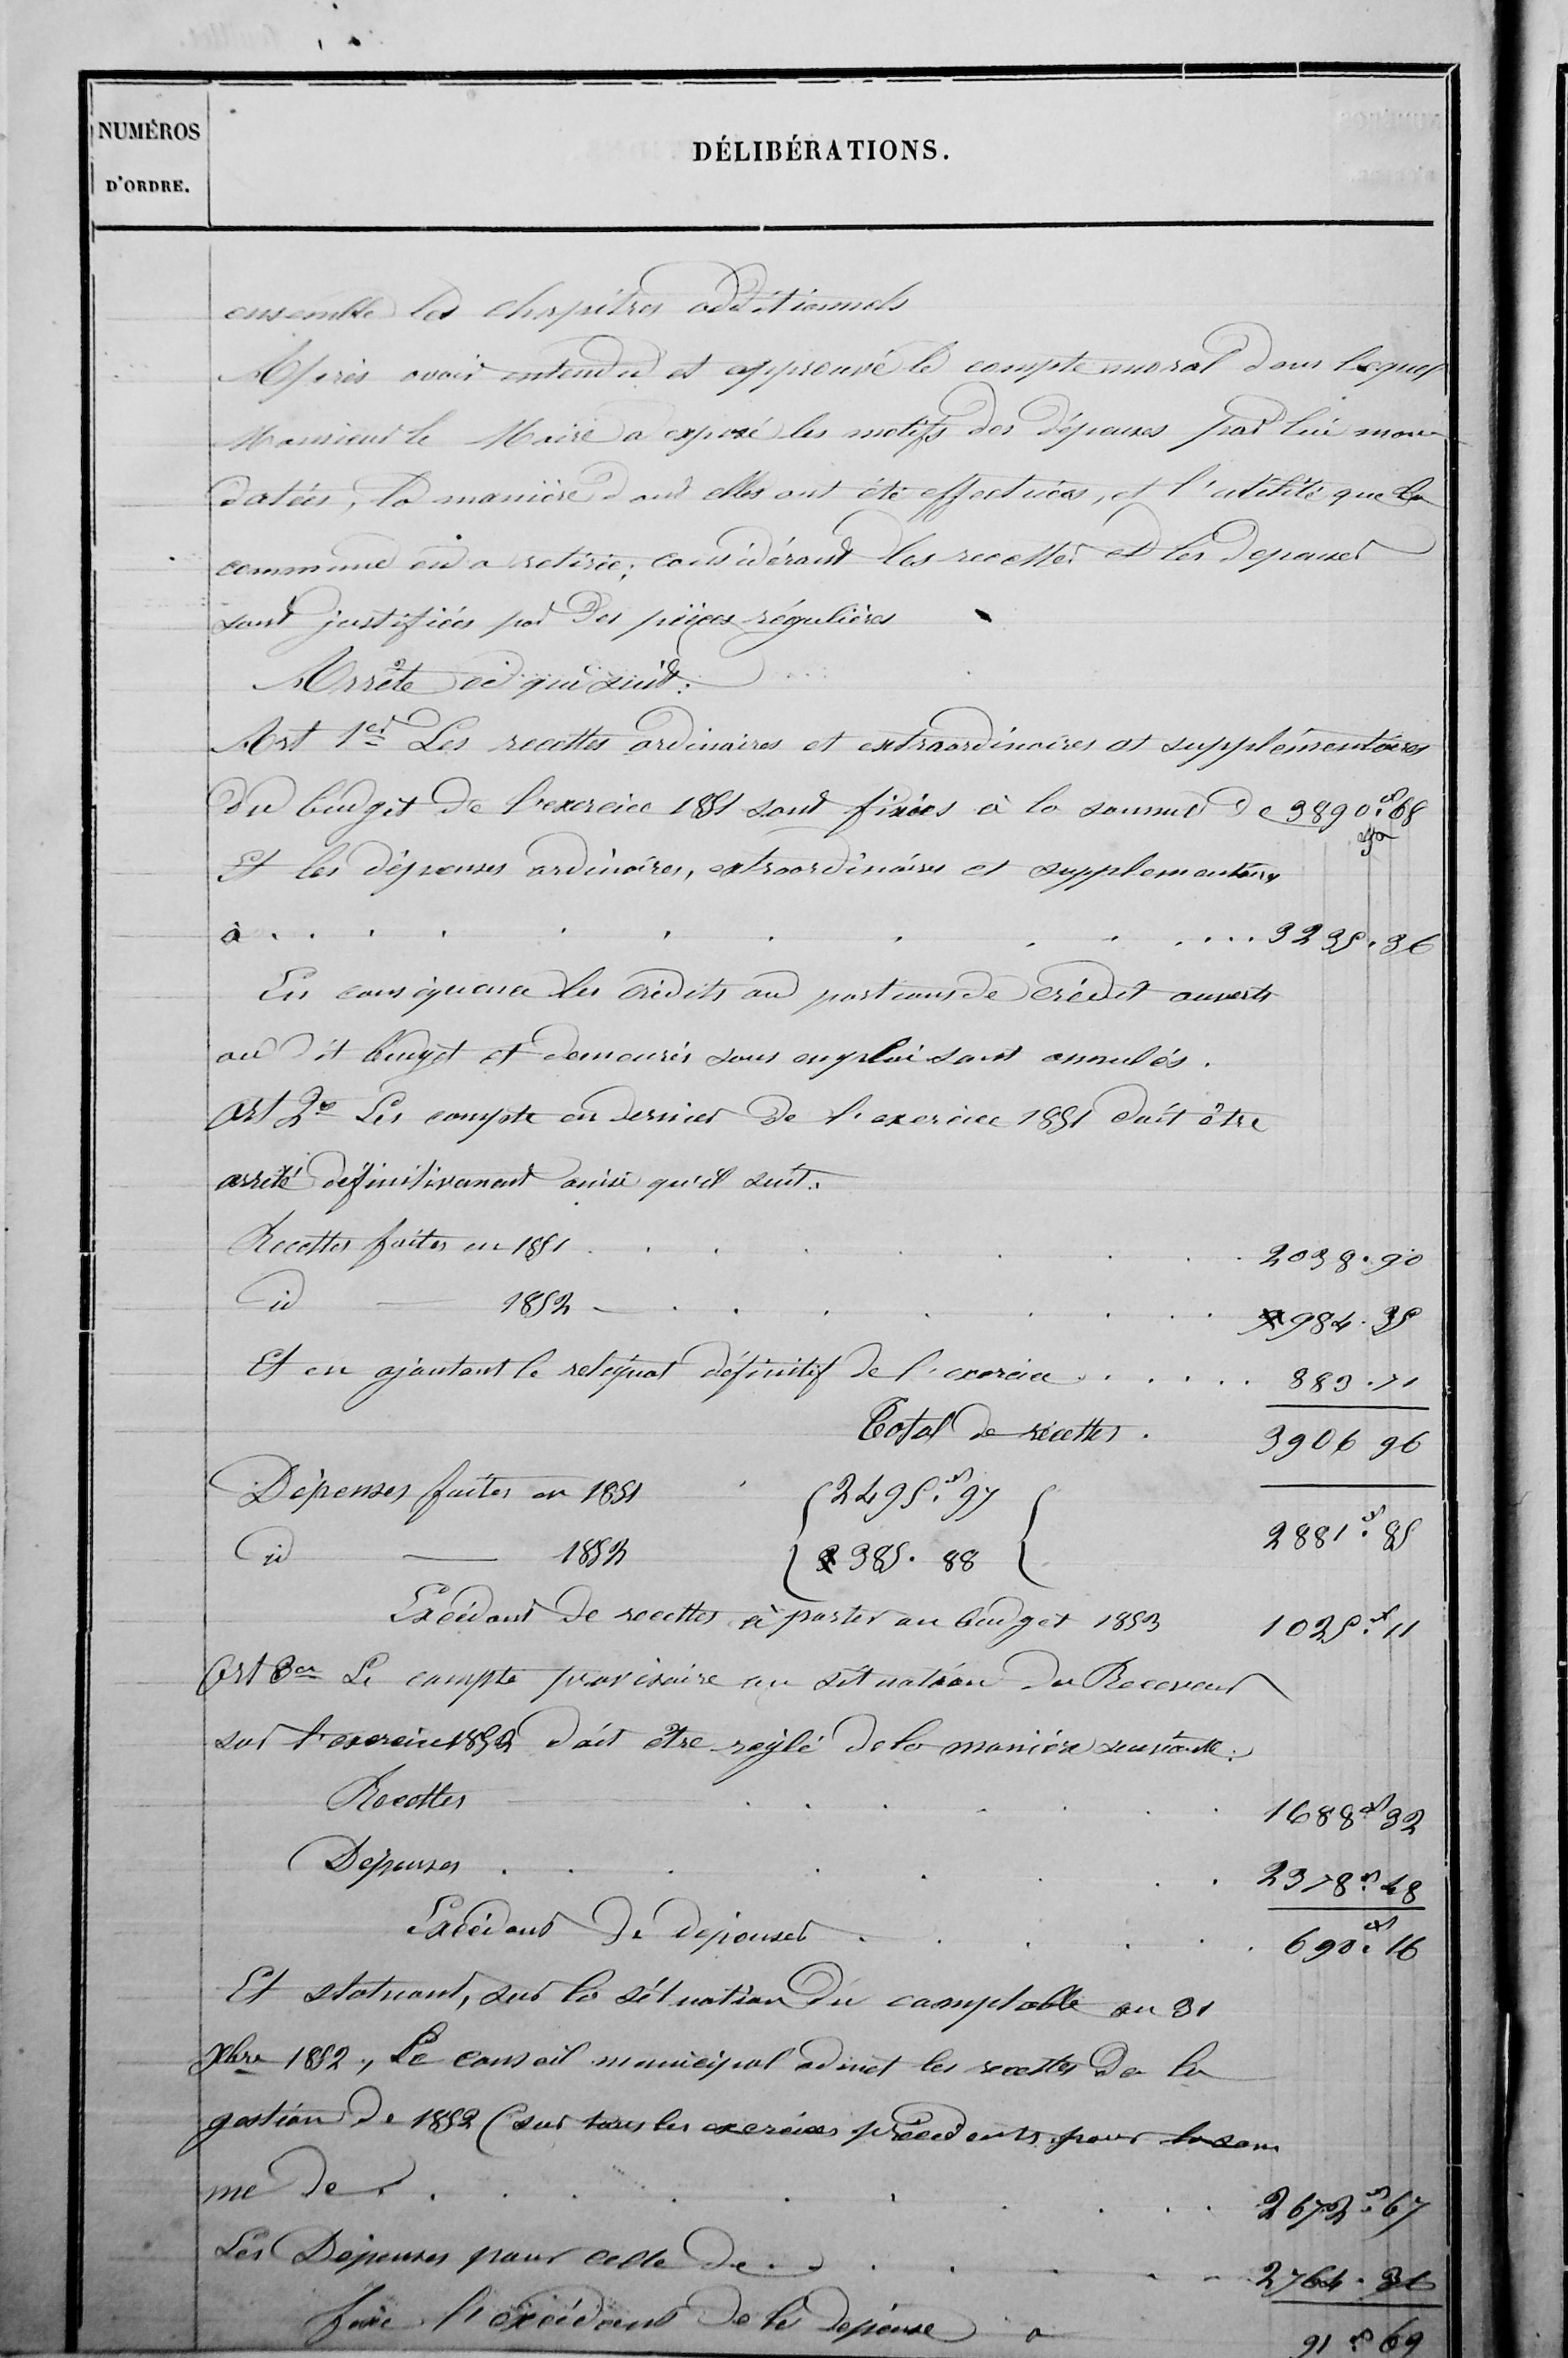 NUMÉROS
D'ORDRE.
DÉLIBÉRATIONS.
ensemble les chapitres additionnels
Après avoir entendu et approuvé le compte moral dans lequel
Monsieur le Maire a exposé les motifs des dépenses par lui man
datées, la manière dont elles ont été effectuées, et l'utilité que la
commune en a retirée; considérant les recettes et les depenses
sont justifiées par des pièces régulières
Arrête ce qui suit:
Art 1er Les recettes ordinaires et extraordinaires et supplémentaires
du budget de l'exercice 1851 sont fixées à la somme de 3890.f68
Et les dépenses ordinaires, extraordinaires et supplementaires
à . . . . . . . . . . . . 3235.36
En consequence les crédits ou portions de crédit ouverts
au dit budget et demeurés sans emploi sont annulés.
Art 2e Les compte en dernier de l'exercice 1851 doit être
arrêté définitivement ainsi qu'il suit.
Recettes faites en 1851 . . . . . . . 2038.90
id — 1852 — . . . . . . 984.35
Et en ajoutant le reliquat définitif de l'exercice . . . . . . 883.71
Total de recettes. 3906 96
Dépenses faites en 1851 2495.f97
2881.f85
id — 1852 385. 88
Excédant de recettes à porter au budget 1853 1025.f11
Art 3er Le compte provisoire ou situation du Receveur
sur l'exercice 1852 doit être réglé de la manière suivante:
Recettes . . . . . . . 1688f32
Dépenses . . . . . . . 2378.f48
Excédant de depenses . . . . . 690.f16
Et statuant, sur la situation du comptable au 31
Xbre 1852., Le Conseil municipal admet les recettes de la
gestion de 1852 (sur tous les exercices précédents pour la som
me de . . . . . . . . 2672.f67
Les Dépenses pour celle de . . . . . . 2764.36
fixe l'excédant de la depense à 91.f69